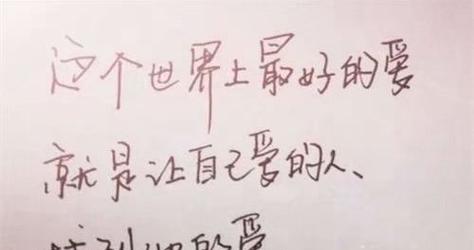 这个世界上最好的爱
就是让自己爱的人、
的爱